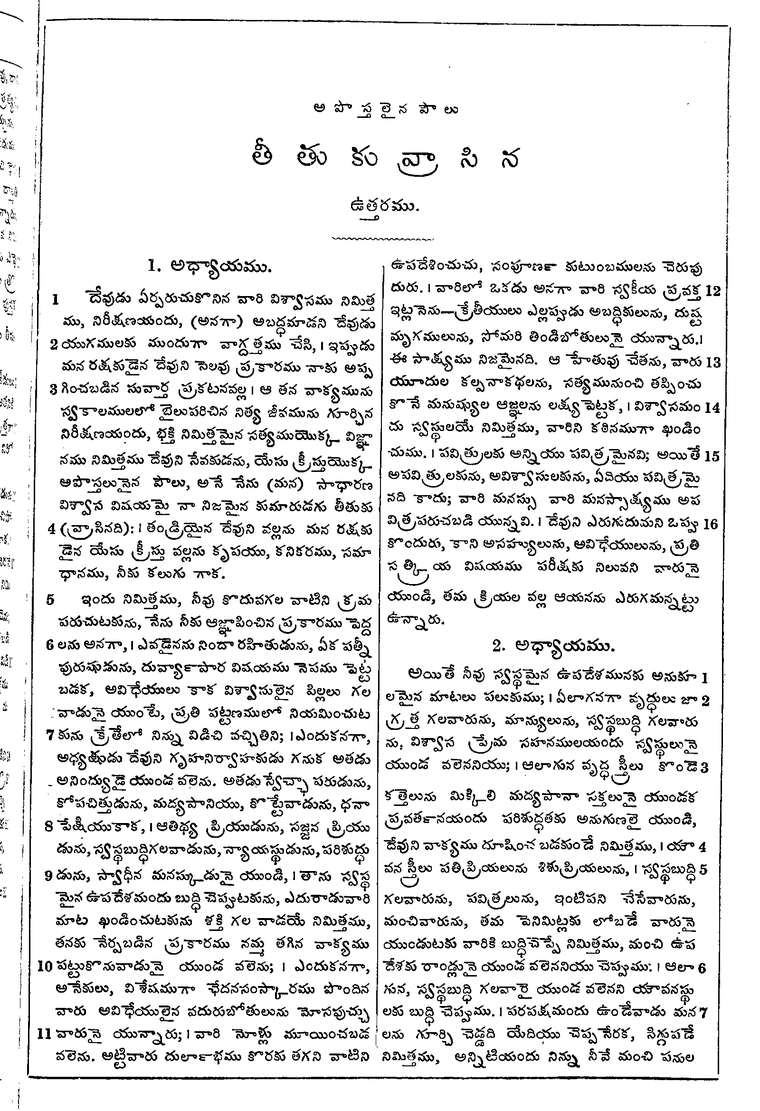 అపొస్తలైన పౌలు
తీతుకు వ్రాసిన
ఉత్తరము.
1. అధ్యాయము.
1 దేవుడు ఏర్పరుచుకొనిన వారి విశ్వాసము నిమిత్త
ము, నిరీక్షణయందు, (అనగా) అబద్ధమాడని దేవుడు
2 యుగములకు ముందుగా వాగ్దత్తము చేసి, । ఇప్పుడు
మన రక్షకుడైన దేవుని సెలవు ప్రకారము నాకు అప్ప
3 గించబడిన సువార్త ప్రకటనవల్ల । ఆ తన వాక్యమును
స్వకాలములలో బైలుపరిచిన నిత్య జీవమును గూర్చిన
నిరీక్షణయందు, భక్తి నిమిత్తమైన సత్యముయొక్క విజ్ఞా
నము నిమిత్తము దేవుని సేవకుడను, యేసు క్రీస్తుయొక్క
ఆపొస్తలుడునైన పౌలు, అనే నేను (మన) సాధారణ
విశ్వాస విషయమై నా నిజమైన కుమారుడగు తీతుకు
4 (వ్రాసినది): । తండ్రియైన దేవుని వల్లను మన రక్షకు
డైన యేసు క్రీస్తు వల్లను కృపయు, కనికరము, సమా
ధానము, నీకు కలుగు గాక.
5 ఇందు నిమిత్తము, నీవు కొదువగల వాటిని క్రమ
పరుచుటకును, నేను నీకు ఆజ్ఞాపించిన ప్రకారము పెద్ద
6 లను అనగా, । ఎవడైనను నిందా రహితుడును, ఏక పత్నీ
పురుషుడును, దుర్వ్యాపార విషయము నెపము పెట్ట
బడక, అవిధేయులు కాక విశ్వాసులైన పిల్లలు గల
వాడునై యుంటే, ప్రతి పట్టణములో నియమించుట
7 కును క్రేతేలో నిన్ను విడిచి వచ్చితిని; । ఎందుకనగా,
అధ్యక్షుడు దేవుని గృహనిర్వాహకుడు గనుక అతడు
అనింద్యుడై యుండ వలెను. అతడు స్వేచ్ఛా పరుడును,
కోపచిత్తుడును, మద్యపానియు, కొట్టేవాడును, ధనా
8 పేక్షియుకాక, । ఆతిథ్య ప్రియుడును, సజ్జన ప్రియు
డును, స్వస్థబుద్ధిగలవాడును, న్యాయస్థుడును, పరిశుద్ధు
9 డును, స్వాధీన మనస్కుడునై యుండి, । తాను స్వస్థ
మైన ఉపదేశమందు బుద్ధి చెప్పుటకును, ఎదురాడువారి
మాట ఖండించుటకును శక్తి గల వాడయే నిమిత్తము,
తనకు నేర్పబడిన ప్రకారము నమ్మ తగిన వాక్యము
10 పట్టుకొనువాడునై యుండ వలెను; । ఎందుకనగా,
అనేకులు, విశేషముగా ఛేదనసంస్కారము పొందిన
వారు అవిధేయులైన వదురుబోతులును మోసపుచ్చు
11 వారునై యున్నారు; । వారి నోళ్లు మూయించబడ
వలెను. అట్టివారు దుర్లాభము కొరకు తగని వాటిని
ఉపదేశించుచు, సంపూర్ణ కుటుంబములను చెరుపు
దురు. । వారిలో ఒకడు అనగా వారి స్వకీయ ప్రవక్త 12
ఇట్లనెను—క్రేతీయులు ఎల్లప్పుడు అబద్ధికులును, దుష్ట
మృగములును, సోమరి తిండిబోతులునై యున్నారు.।
ఈ సాక్ష్యము నిజమైనది. ఆ హేతువు చేతను, వారు 13
యూదుల కల్పనాకథలను, సత్యమునుంచి తప్పించు
కొనే మనుష్యుల ఆజ్ఞలను లక్ష్యపెట్టక, । విశ్వాసమం 14
దు స్వస్థులయే నిమిత్తము, వారిని కఠినముగా ఖండిం
చుము. । పవిత్రులకు అన్నియు పవిత్రమైనవి; అయితే 15
అపవిత్రులకును, అవిశ్వాసులకును, ఏదియు పవిత్రమై
నది కాదు; వారి మనస్సు వారి మనస్సాక్ష్యము అప
విత్రపరుచబడి యున్నవి. । దేవుని ఎరుగుదుమని ఒప్పు 16
కొందురు, కాని అసహ్యులును, అవిధేయులును, ప్రతి
సత్క్రియ విషయము పరీక్షకు నిలువని వారునై
యుండి, తమ క్రియల వల్ల ఆయనను ఎరుగమన్నట్టు
ఉన్నారు.
2. అధ్యాయము.
అయితే నీవు స్వస్థమైన ఉపదేశమునకు అనుకూ 1
లమైన మాటలు పలుకుము; । ఏలాగనగా వృద్ధులు జా 2
గ్రత్త గలవారును, మాన్యులును, స్వస్థబుద్ధి గలవారు
ను, విశ్వాస ప్రేమ సహనములయందు స్వస్థులునై
యుండ వలెననియు; । ఆలాగున వృద్ధ స్త్రీలు కొండె 3
కత్తెలును మిక్కిలి మద్యపానా సక్తలునై యుండక
ప్రవర్తనయందు పరిశుద్ధతకు అనుగుణలై యుండి,
దేవుని వాక్యము దూషించ బడకుండే నిమిత్తము, । యౌ 4
వన స్త్రీలు పతిప్రియలును శిశుప్రియలును, । స్వస్థబుద్ధి 5
గలవారును, పవిత్రలును, ఇంటిపని చేసేవారును,
మంచివారును, తమ పెనిమిట్లకు లోబడే వారునై
యుండుటకు వారికి బుద్ధిచెప్పే నిమిత్తము, మంచి ఉప
దేశకు రాండ్లునై యుండ వలెననియు చెప్పుము: । ఆలా 6
గున, స్వస్థబుద్ధి గలవారై యుండ వలెనని యౌవనస్థు
లకు బుద్ధి చెప్పుము. । పరపక్షమందు ఉండేవాడు మన 7
లను గూర్చి చెడ్డది యేదియు చెప్పనేరక, సిగ్గుపడే
నిమిత్తము, అన్నిటియందు నిన్ను నీవే మంచి పనుల